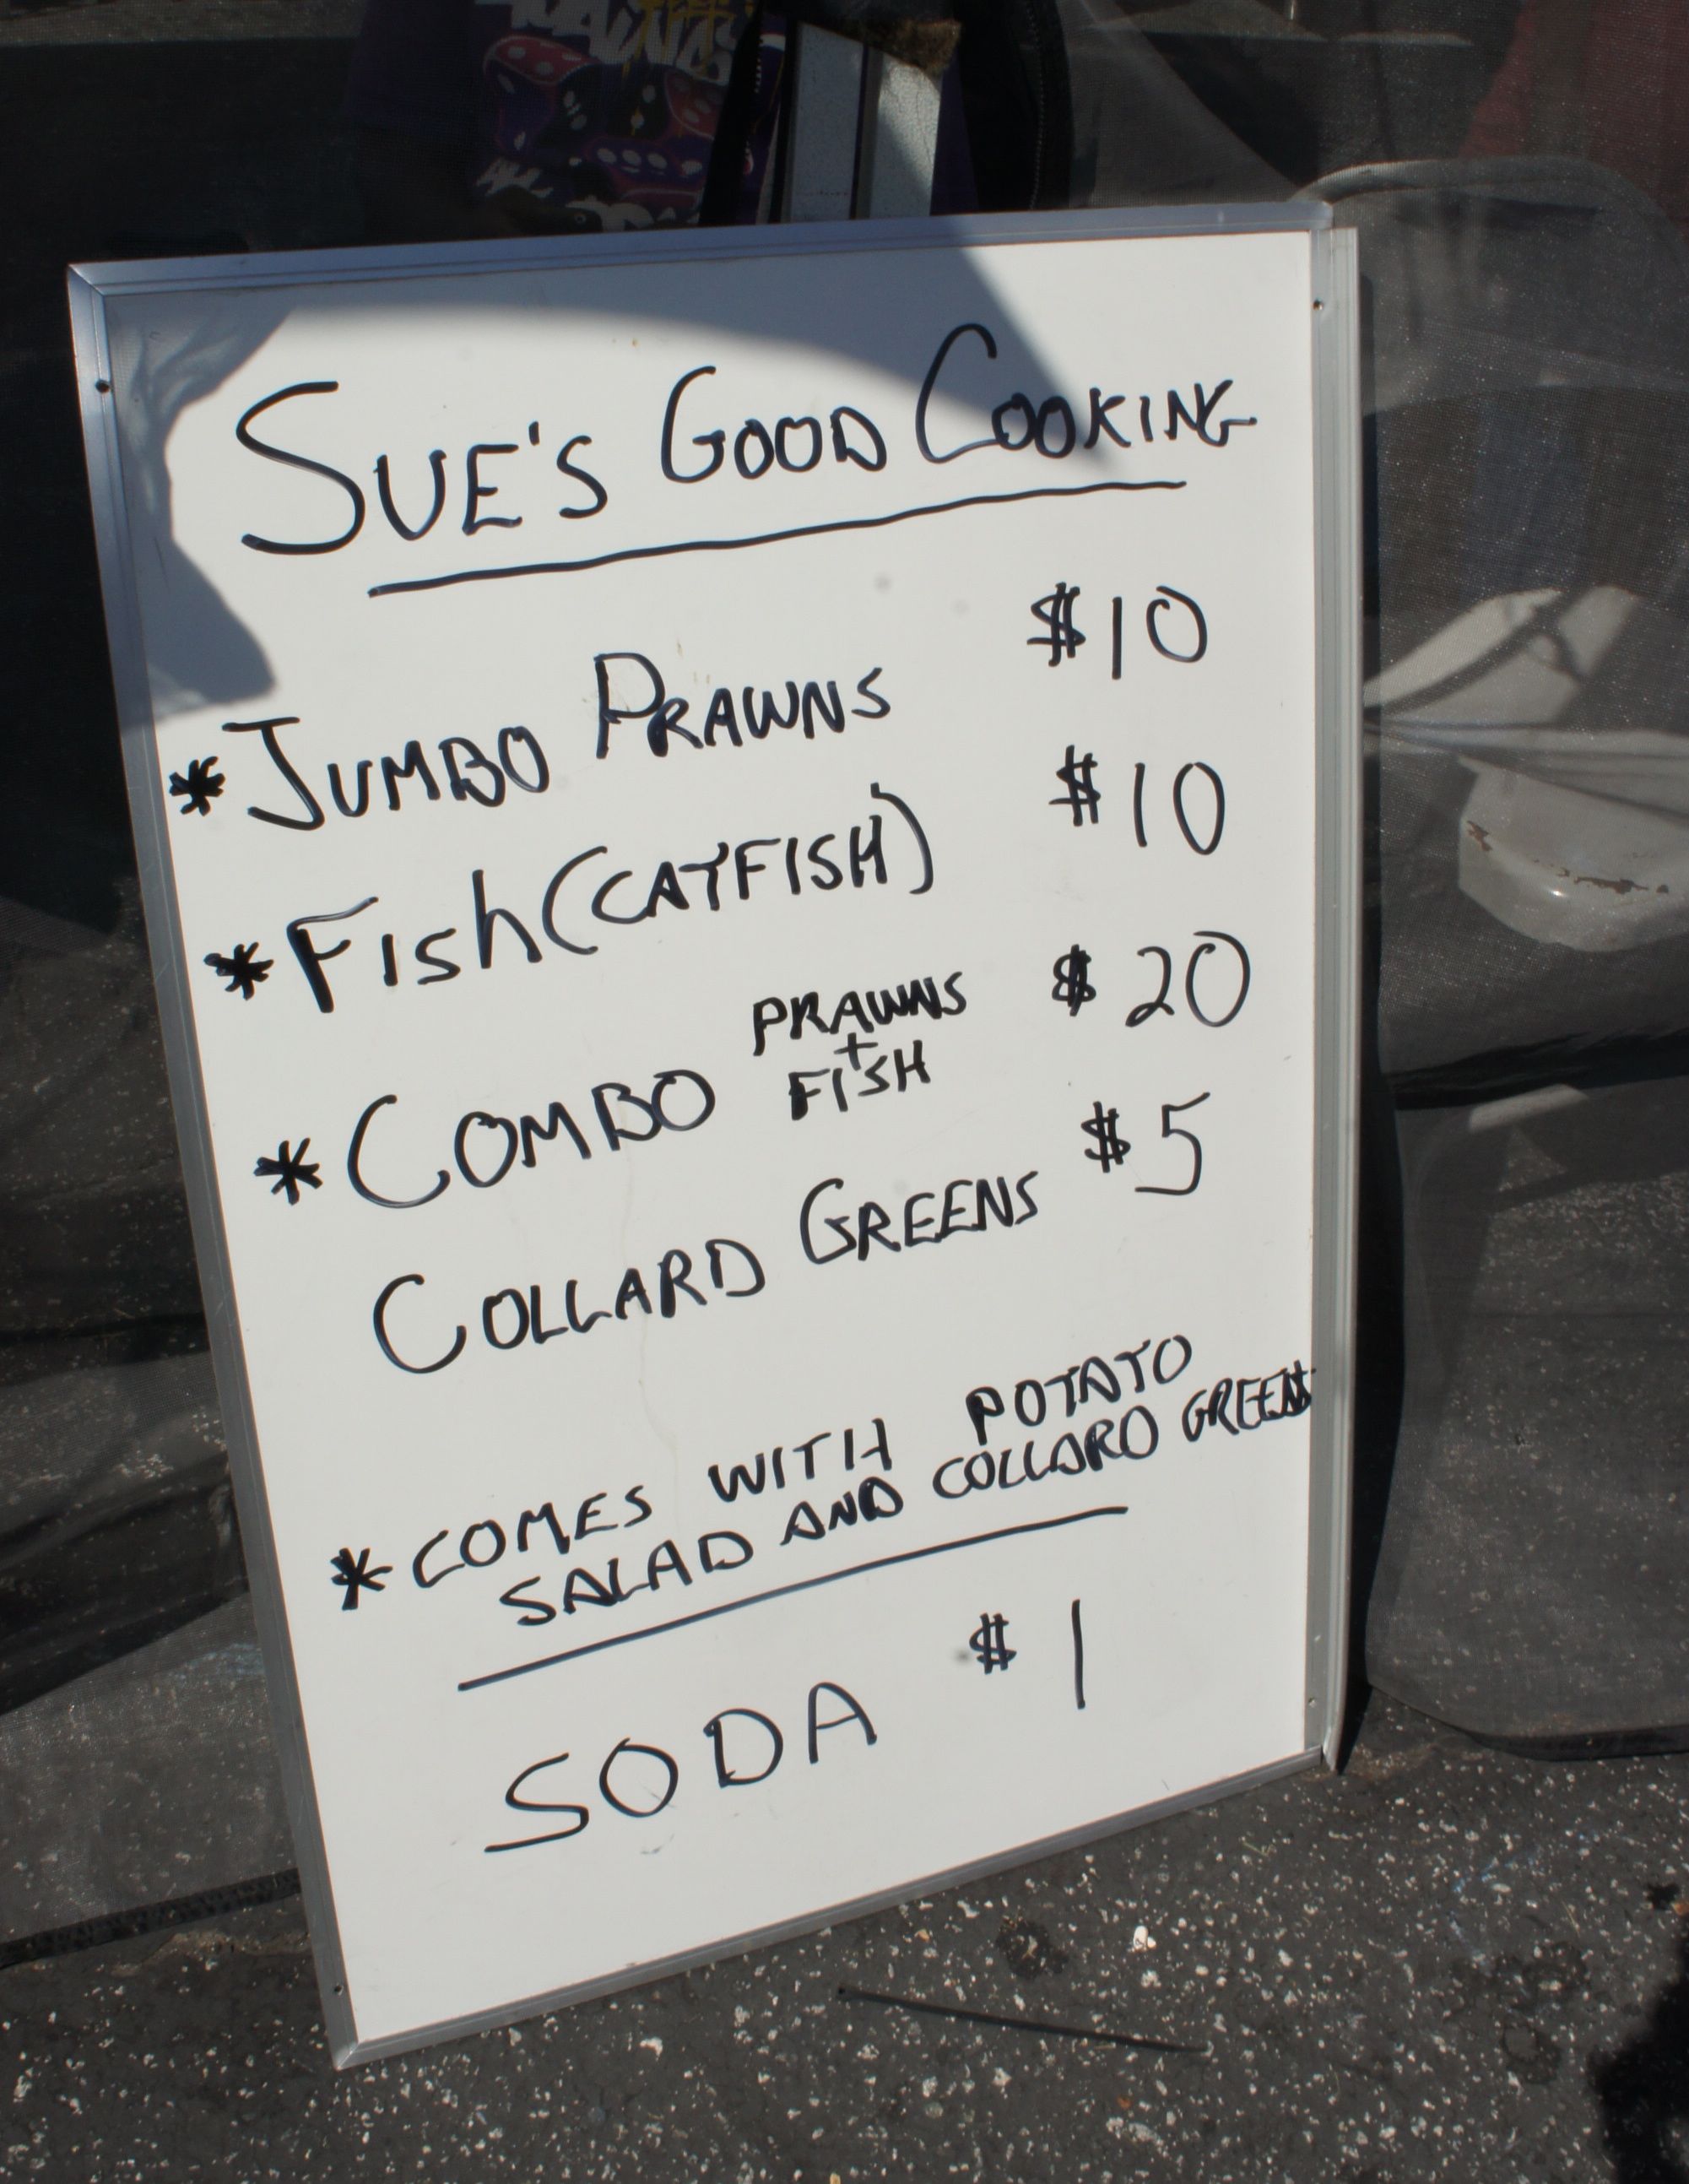 SUE'S GOOD COOKING
* JUMBO PRAWNS $10
* Fish (CATFISH) $10
* COMBO PRAWNS + FISH $20
COLLARD GREENS $5
* COMES WITH POTATO
SALAD AND COLLARD GREENS
SODA $1